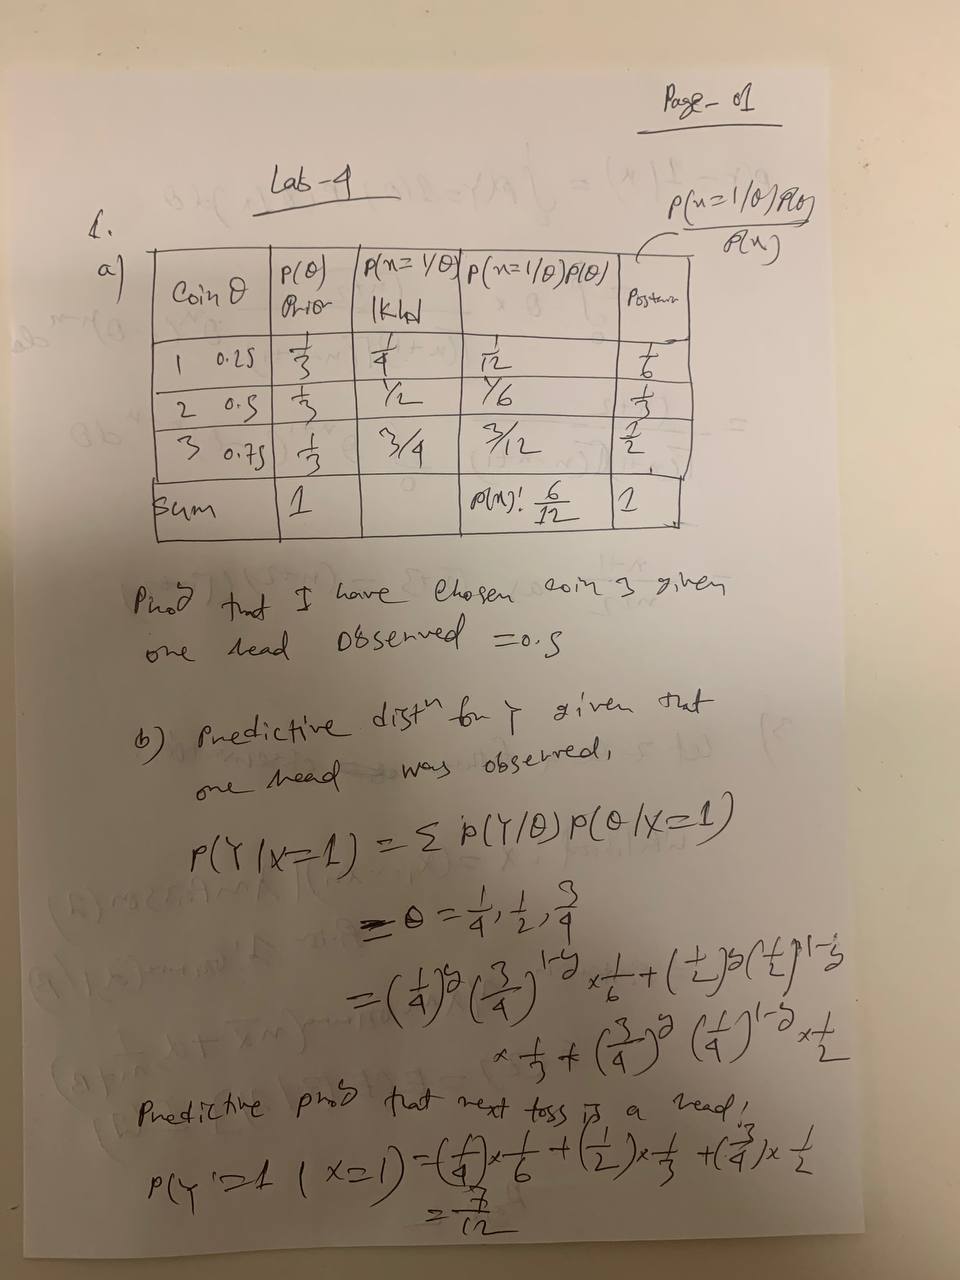 Page- 01
Lab-4
P(x=1/θ)P(θ)
P(x)
1.
a)
Coin θ | P(θ) Prior | P(x=1/θ) lklhd | P(x=1/θ)P(θ) | Posterior
1 0.25 | 1/3 | 1/4 | 1/12 | 1/6
2 0.5 | 1/3 | 1/2 | 1/6 | 1/3
3 0.75 | 1/3 | 3/4 | 3/12 | 1/2
Sum | 1 | | P(x): 6/12 | 1
Prob that I have chosen coin 3 given
one head observed = 0.5
b) Predictive distⁿ for Y given that
one head was observed,
P(Y/x=1) = Σ P(Y/θ) P(θ/x=1)
θ = 1/4, 1/2, 3/4
= (1/4)^y (3/4)^1-y × 1/6 + (1/2)^y (1/2)^1-y
× 1/3 + (3/4)^y (1/4)^1-y × 1/2
Predictive prob that next toss is a head,
P(Y=1 | x=1) = (1/4) × 1/6 + (1/2) × 1/3 + (3/4) × 1/2
= 7/12